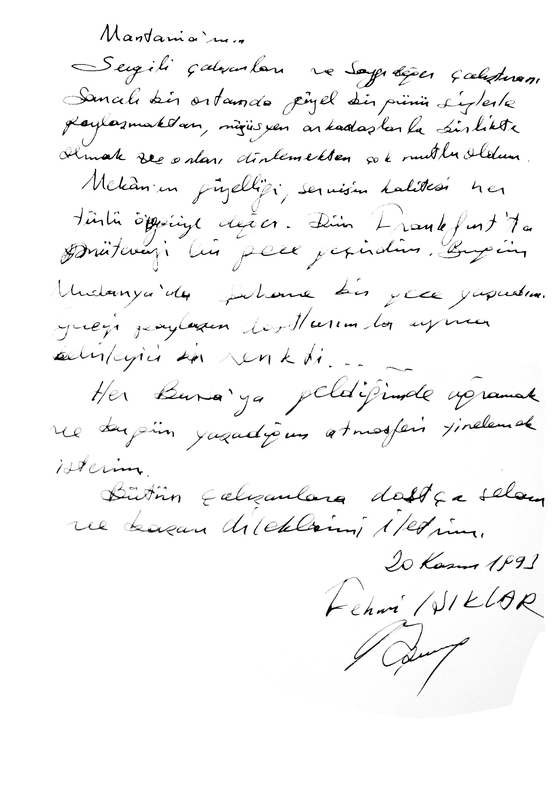 Montania'nın
Sevgili çalışanları ve Saygıdeğer çalıştıranı
Sıcak bir ortamda güzel bir günü sizlerle
paylaşmaktan, müzisyen arkadaşlarla birlikte
olmak ve onları dinlemekten çok mutlu oldum.
Mekânın güzelliği, servisin kalitesi her
türlü övgüye değer. Dün Frankfurt'ta
mütevazi bir gece geçirdim. Bugün
Mudanya'da şahane bir gece yaşadım.
Geceyi paylaşan dostlarım da ayrıca
etkileyici bir renkti...
Her Bursa'ya geldiğimde uğramak
ve bugün yaşadığım atmosferi yinelemek
isterim.
Bütün çalışanlara dostça selam
ve başarı dileklerimi iletirim.
20 Kasım 1993
Fehmi IŞIKLAR